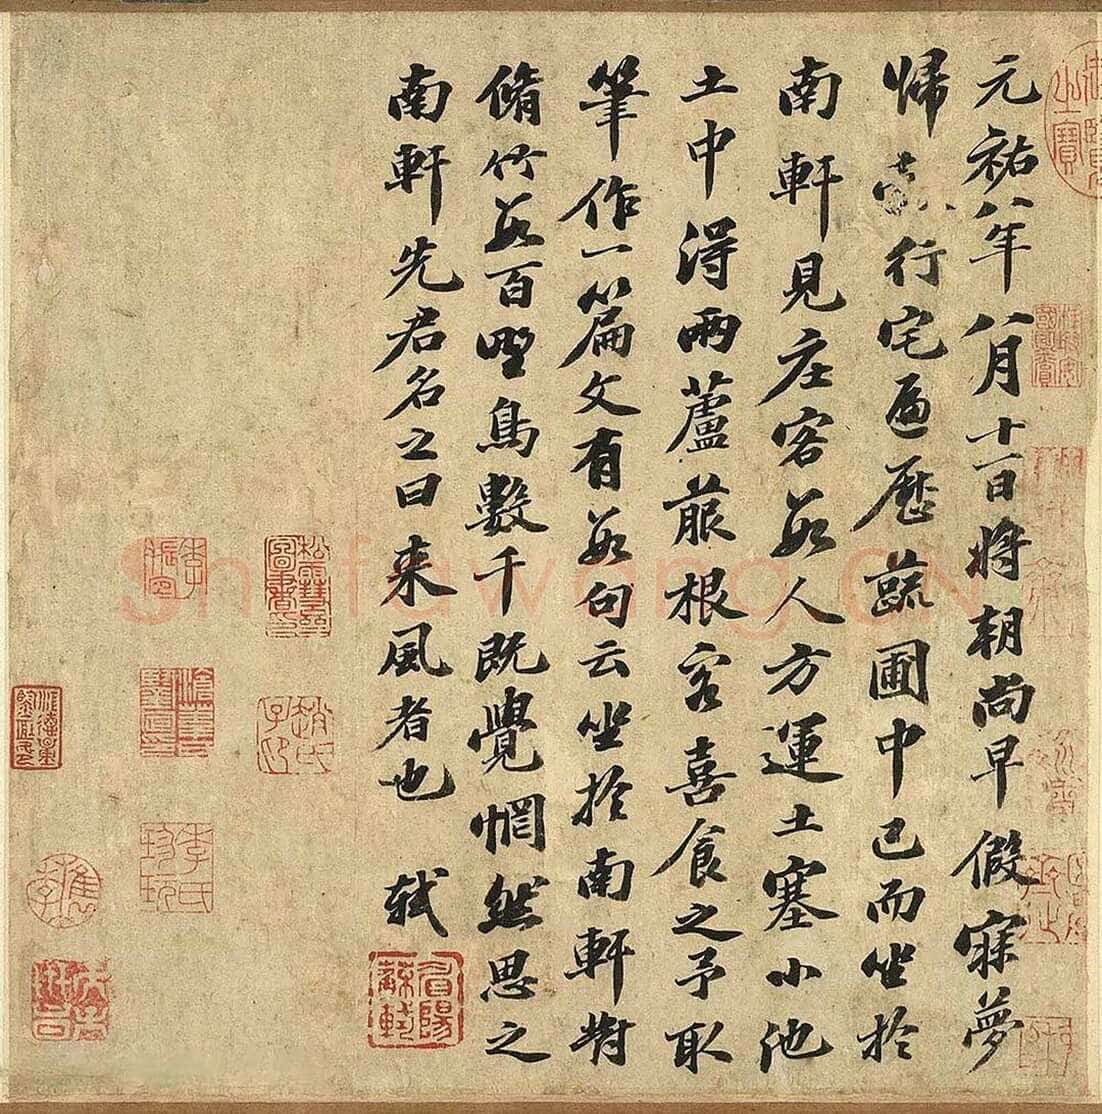 元祐八年八月十一日將朝尚早假寐夢
歸行宅遍歷蔬圃中已而坐於
南軒見庄客數人方運土塞小池
土中得兩蘆菔根客喜食之予取
筆作一篇文有數句云坐於南軒對
脩竹數百野鳥數千既覺惘然思之
南軒先君名之曰来風者也 軾
眉陽蘇軾
趙氏子印
李氏珍玩
Shufawang.CN